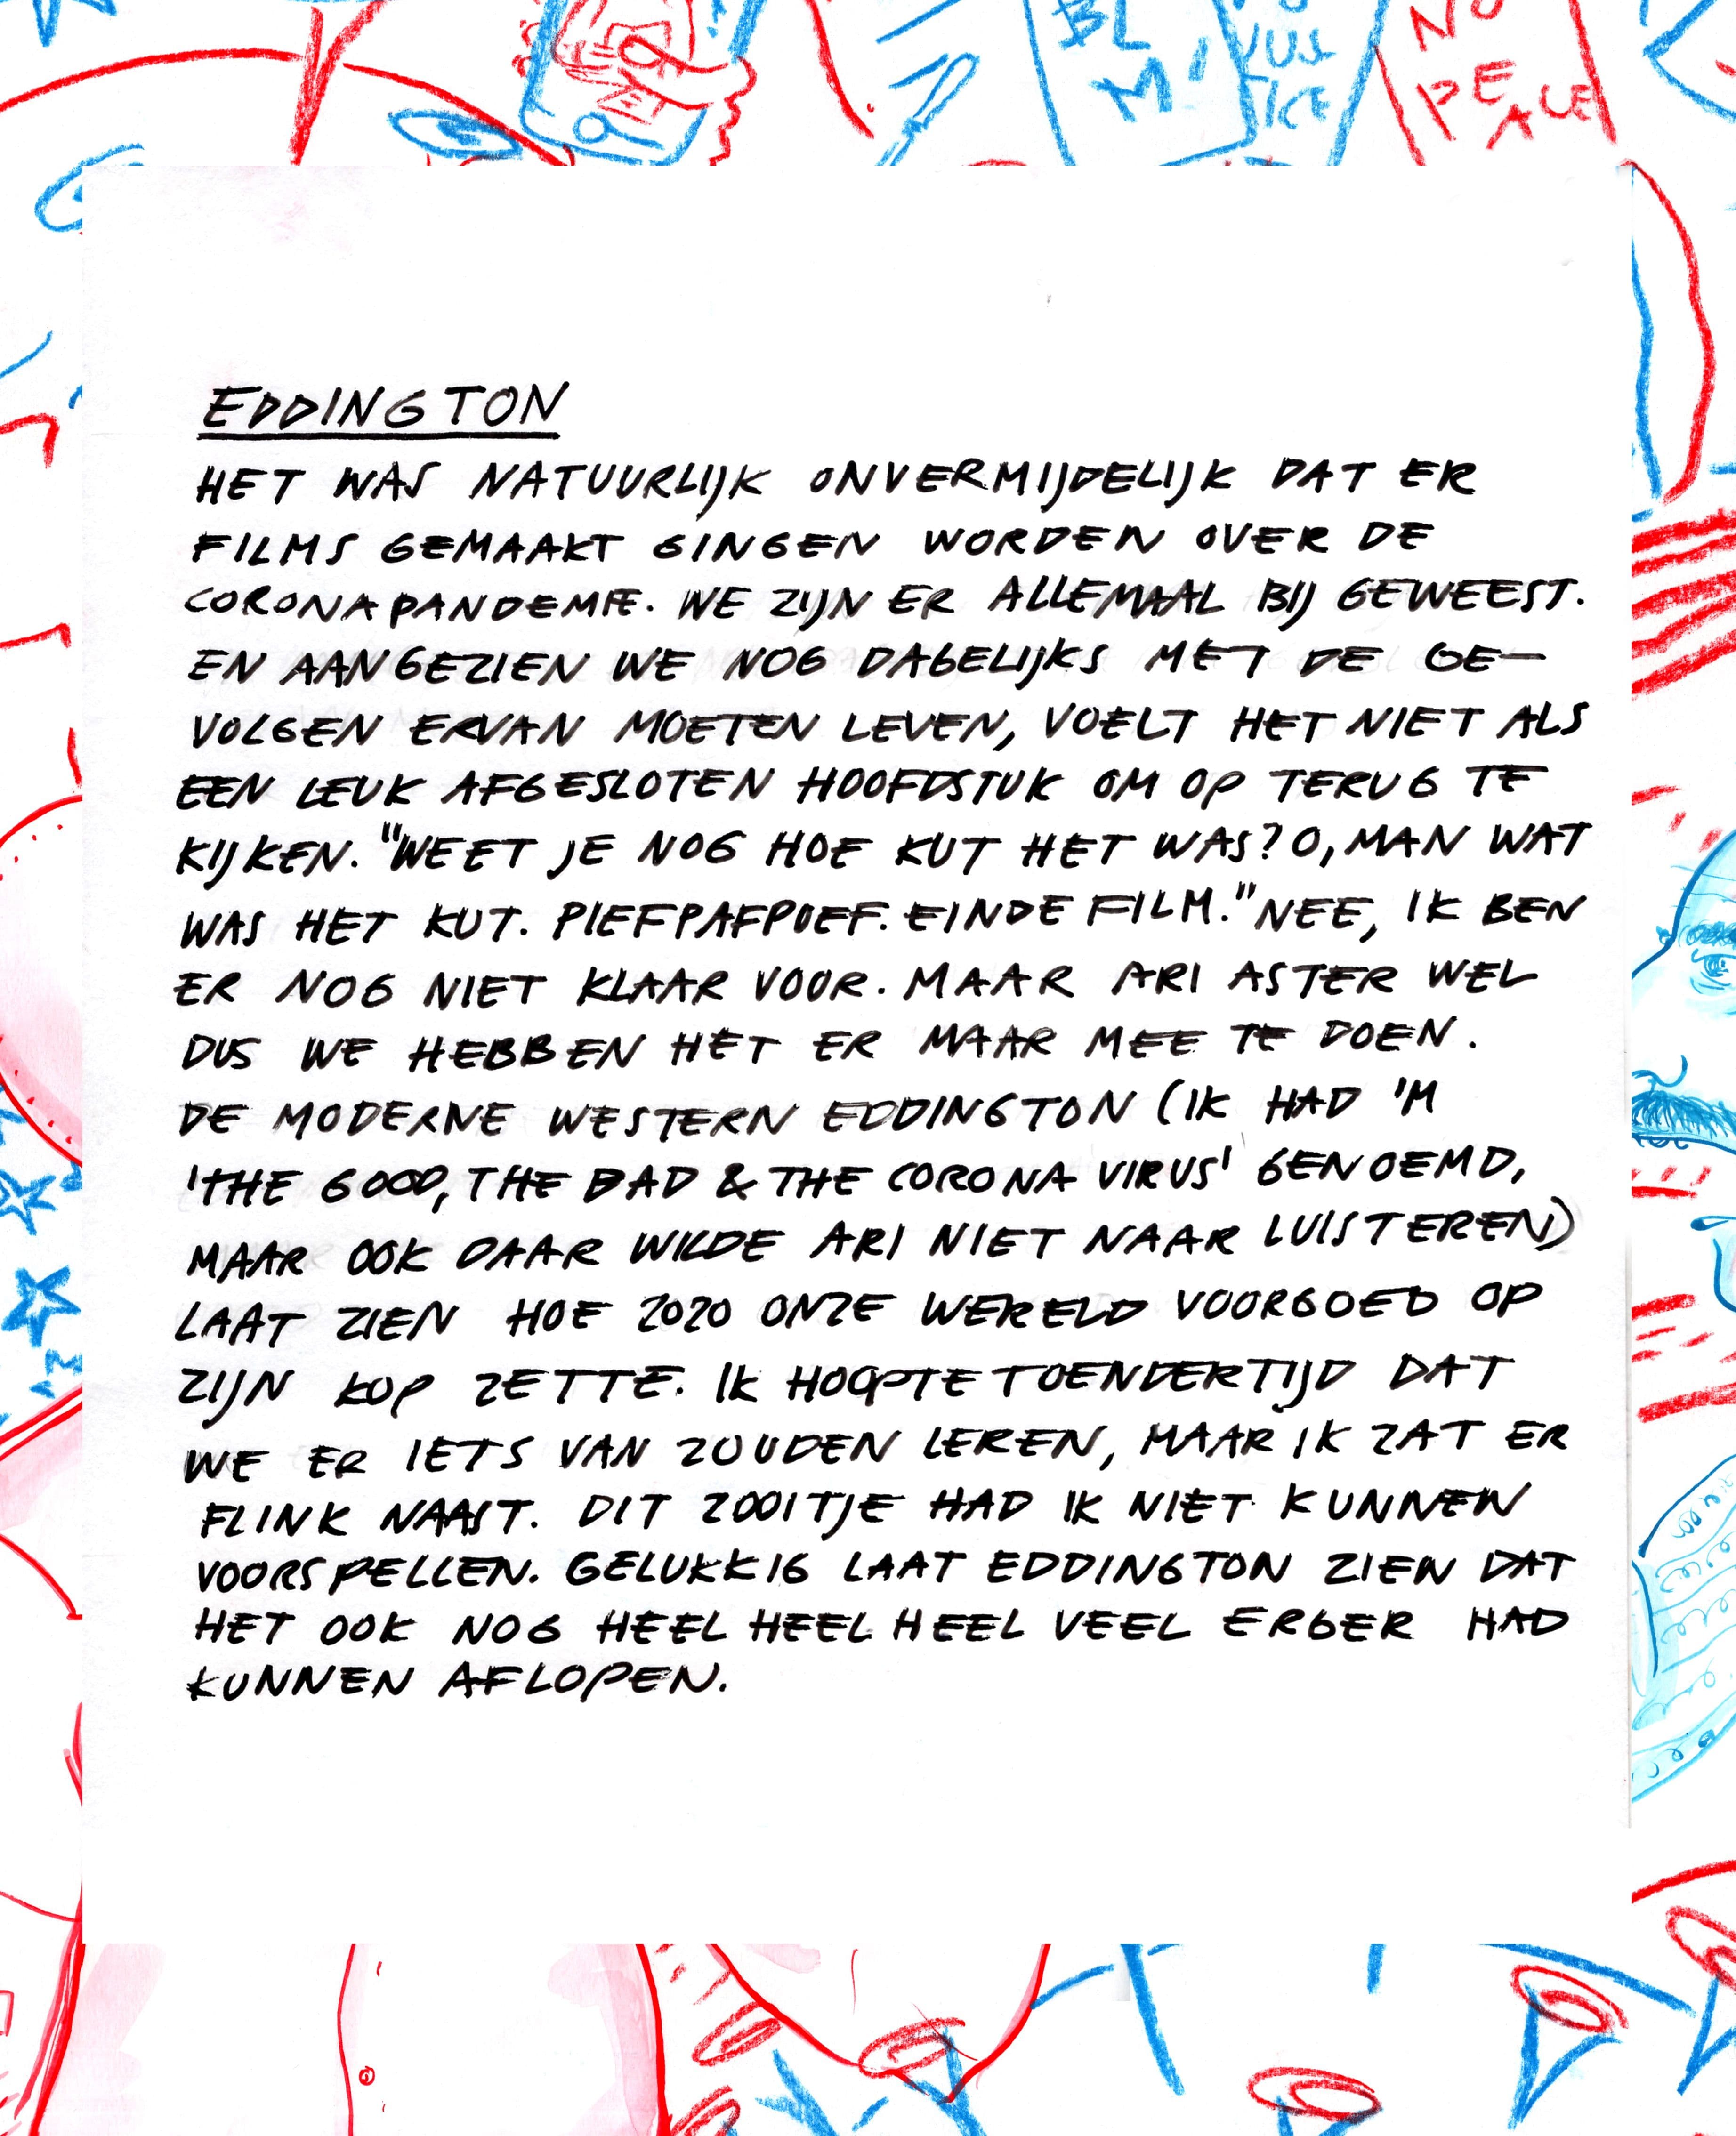 BL
M
NO
JUS
TICE
NO
PEACE
EDDINGTON
HET WAS NATUURLIJK ONVERMIJDELIJK DAT ER
FILMS GEMAAKT GINGEN WORDEN OVER DE
CORONAPANDEMIE. WE ZIJN ER ALLEMAAL BIJ GEWEEST.
EN AANGEZIEN WE NOG DAGELIJKS MET DE GE-
VOLGEN ERVAN MOETEN LEVEN, VOELT HET NIET ALS
EEN LEUK AFGESLOTEN HOOFDSTUK OM OP TERUG TE
KIJKEN. "WEET JE NOG HOE KUT HET WAS? O, MAN WAT
WAS HET KUT. PIEFPAFPOEF. EINDE FILM." NEE, IK BEN
ER NOG NIET KLAAR VOOR. MAAR ARI ASTER WEL
DUS WE HEBBEN HET ER MAAR MEE TE DOEN.
DE MODERNE WESTERN EDDINGTON (IK HAD 'M
'THE GOOD, THE BAD & THE CORONA VIRUS' GENOEMD,
MAAR OOK DAAR WILDE ARI NIET NAAR LUISTEREN)
LAAT ZIEN HOE 2020 ONZE WERELD VOORGOED OP
ZIJN KOP ZETTE. IK HOOPTE TOENDERTIJD DAT
WE ER IETS VAN ZOUDEN LEREN, MAAR IK ZAT ER
FLINK NAAST. DIT ZOOITJE HAD IK NIET KUNNEN
VOORSPELLEN. GELUKKIG LAAT EDDINGTON ZIEN DAT
HET OOK NOG HEEL HEEL HEEL VEEL ERGER HAD
KUNNEN AFLOPEN.